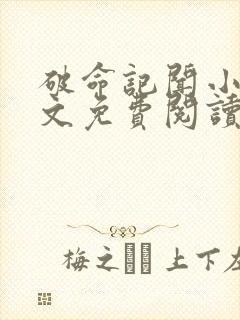 破命記聞小
文免費閱讀
梅之 上下左